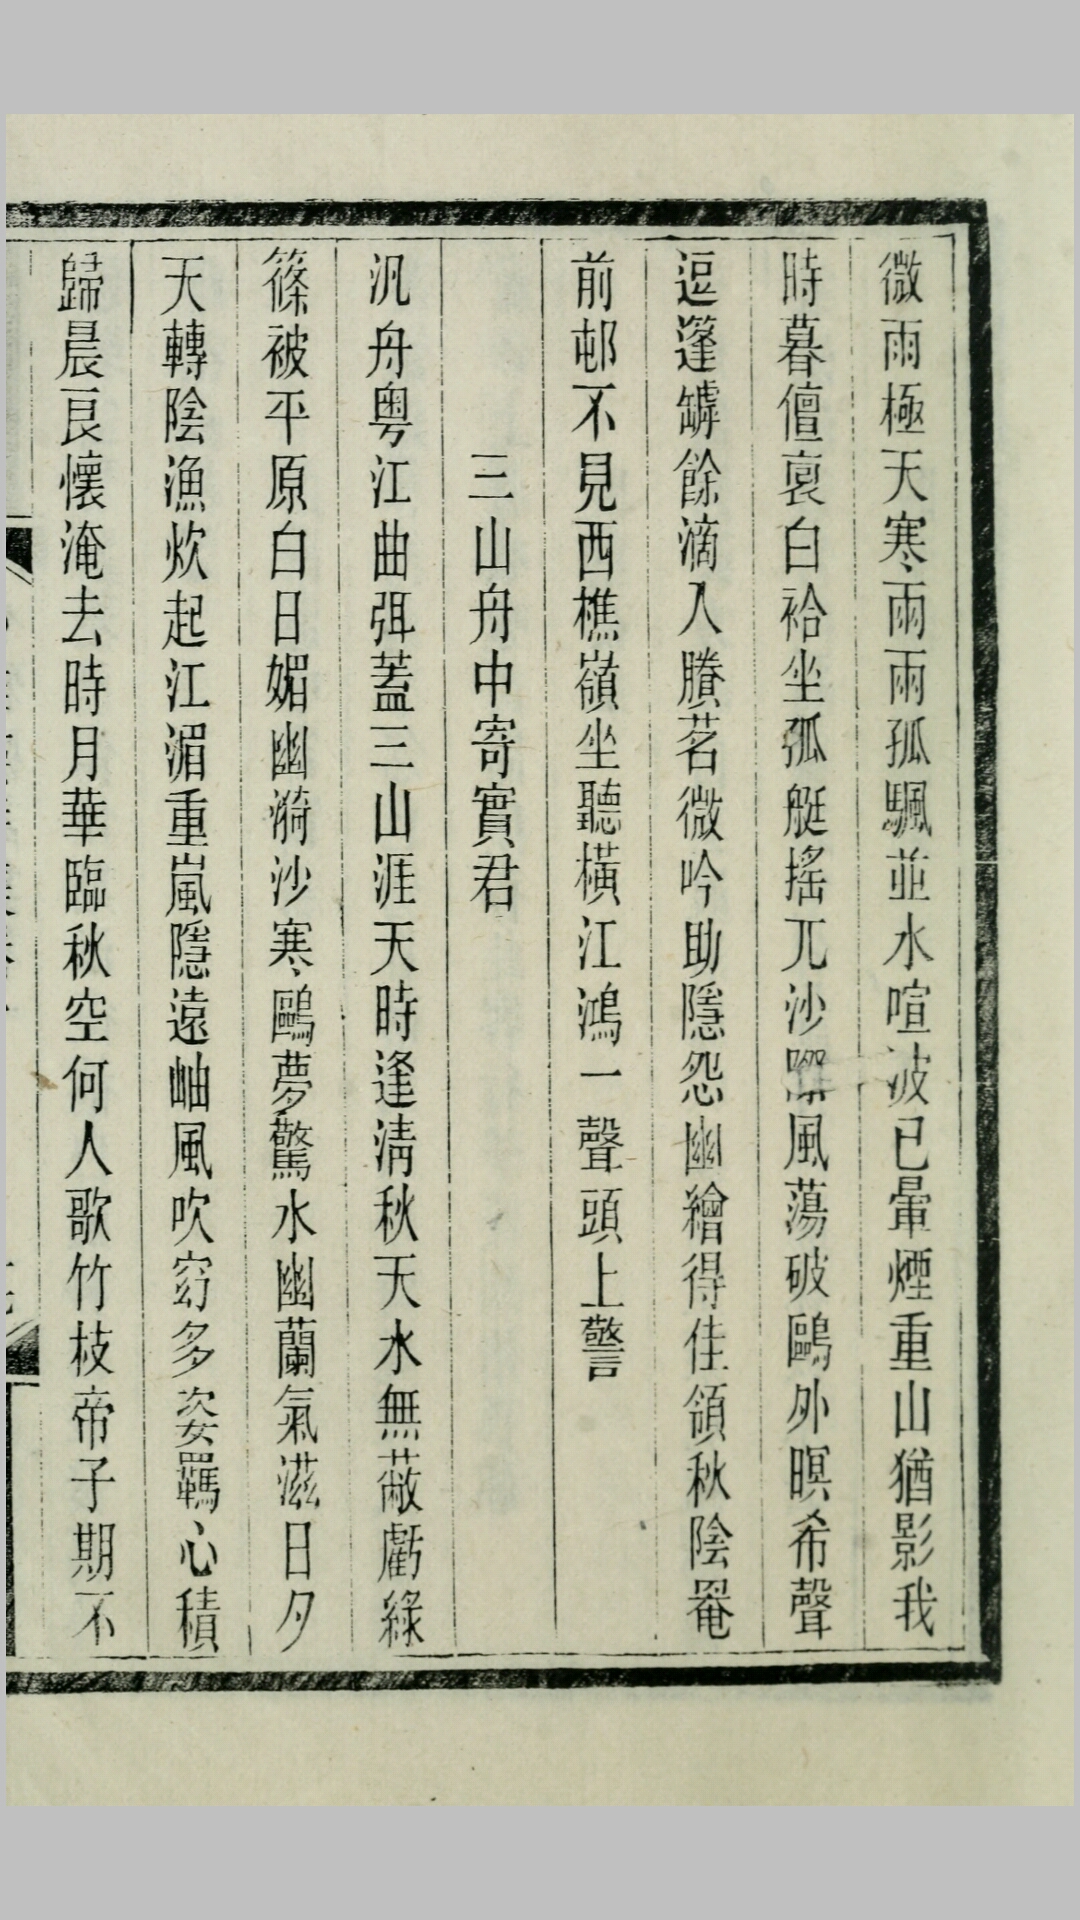 微雨極天寒雨雨孤颿並水喧波已暈煙重山猶影我
時暮儃裒白袷坐孤艇搖兀沙際風蕩破鷗外暝希聲
逗篷罅餘滴入賸茗微吟助隱怨幽繪得佳領秋陰罨
前邨不見西樵嶺坐聽橫江鴻一聲頭上警
三山舟中寄實君
汎舟粤江曲弭蓋三山涯天時逢淸秋天水無蔽虧綠
篠被平原白日媚幽漪沙寒鷗夢驚水幽蘭氣滋日夕
天轉陰漁炊起江湄重嵐隱遠岫風吹窈多姿羈心積
歸晨良懷淹去時月華臨秋空何人歌竹枝帝子期不